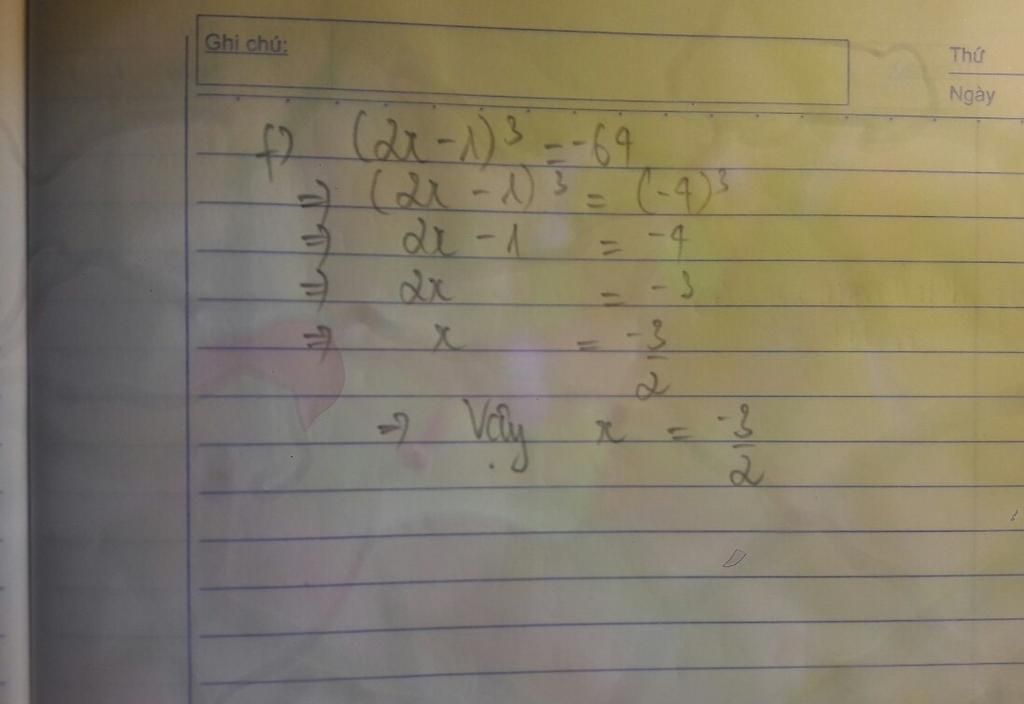 Ghi chú:
Thứ
Ngày
f) (2x - 1)³ = -64
=> (2x - 1)³ = (-4)³
=> 2x - 1 = -4
=> 2x = -3
=> x = -3/2
=> Vậy x = -3/2